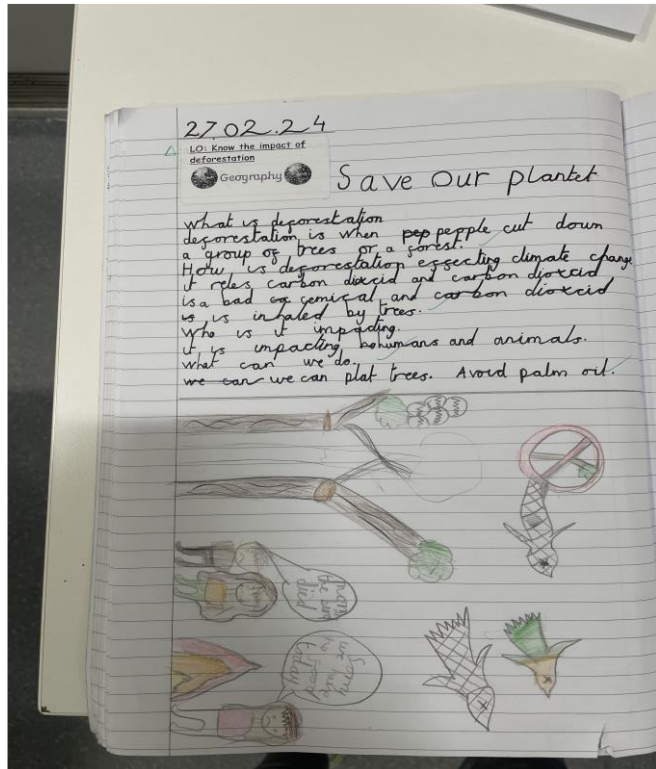 27.02.24
LO: Know the impact of
deforestation
Geography
Save Our plantet
what is deforestation
deforestation is when pepple cut down
a group of trees or a forest.
How is deforestation effecting climate change
it reles carbon dioxcid and carbon dioxcid
is a bad cemical and carbon dioxcid
is inhaled by trees.
Who is it impacting.
it is impacting humans and animals.
what can we do.
we can we can plat trees. Avoid palm oil.
died
Sorry
we have
no food
today